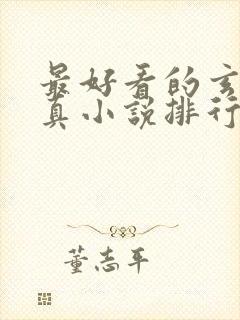 最好看的玄
真小说排行
董志平